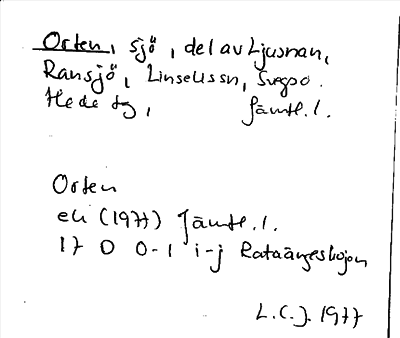 Orten, sjö, del av Ljusnan,
Ransjö, Linsellssn, Svegso.
Hede tg, Jämtl. l.
Orten
ek (1977) Jämtl. l.
17 D 0-1 i-j Rataängeskojan
L.C.J. 1977